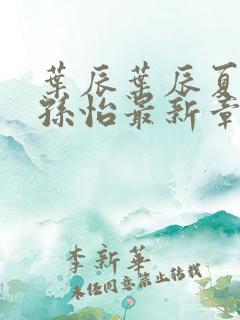 葉辰葉辰夏
孫怡最新章
李新華
未经同意禁止转载